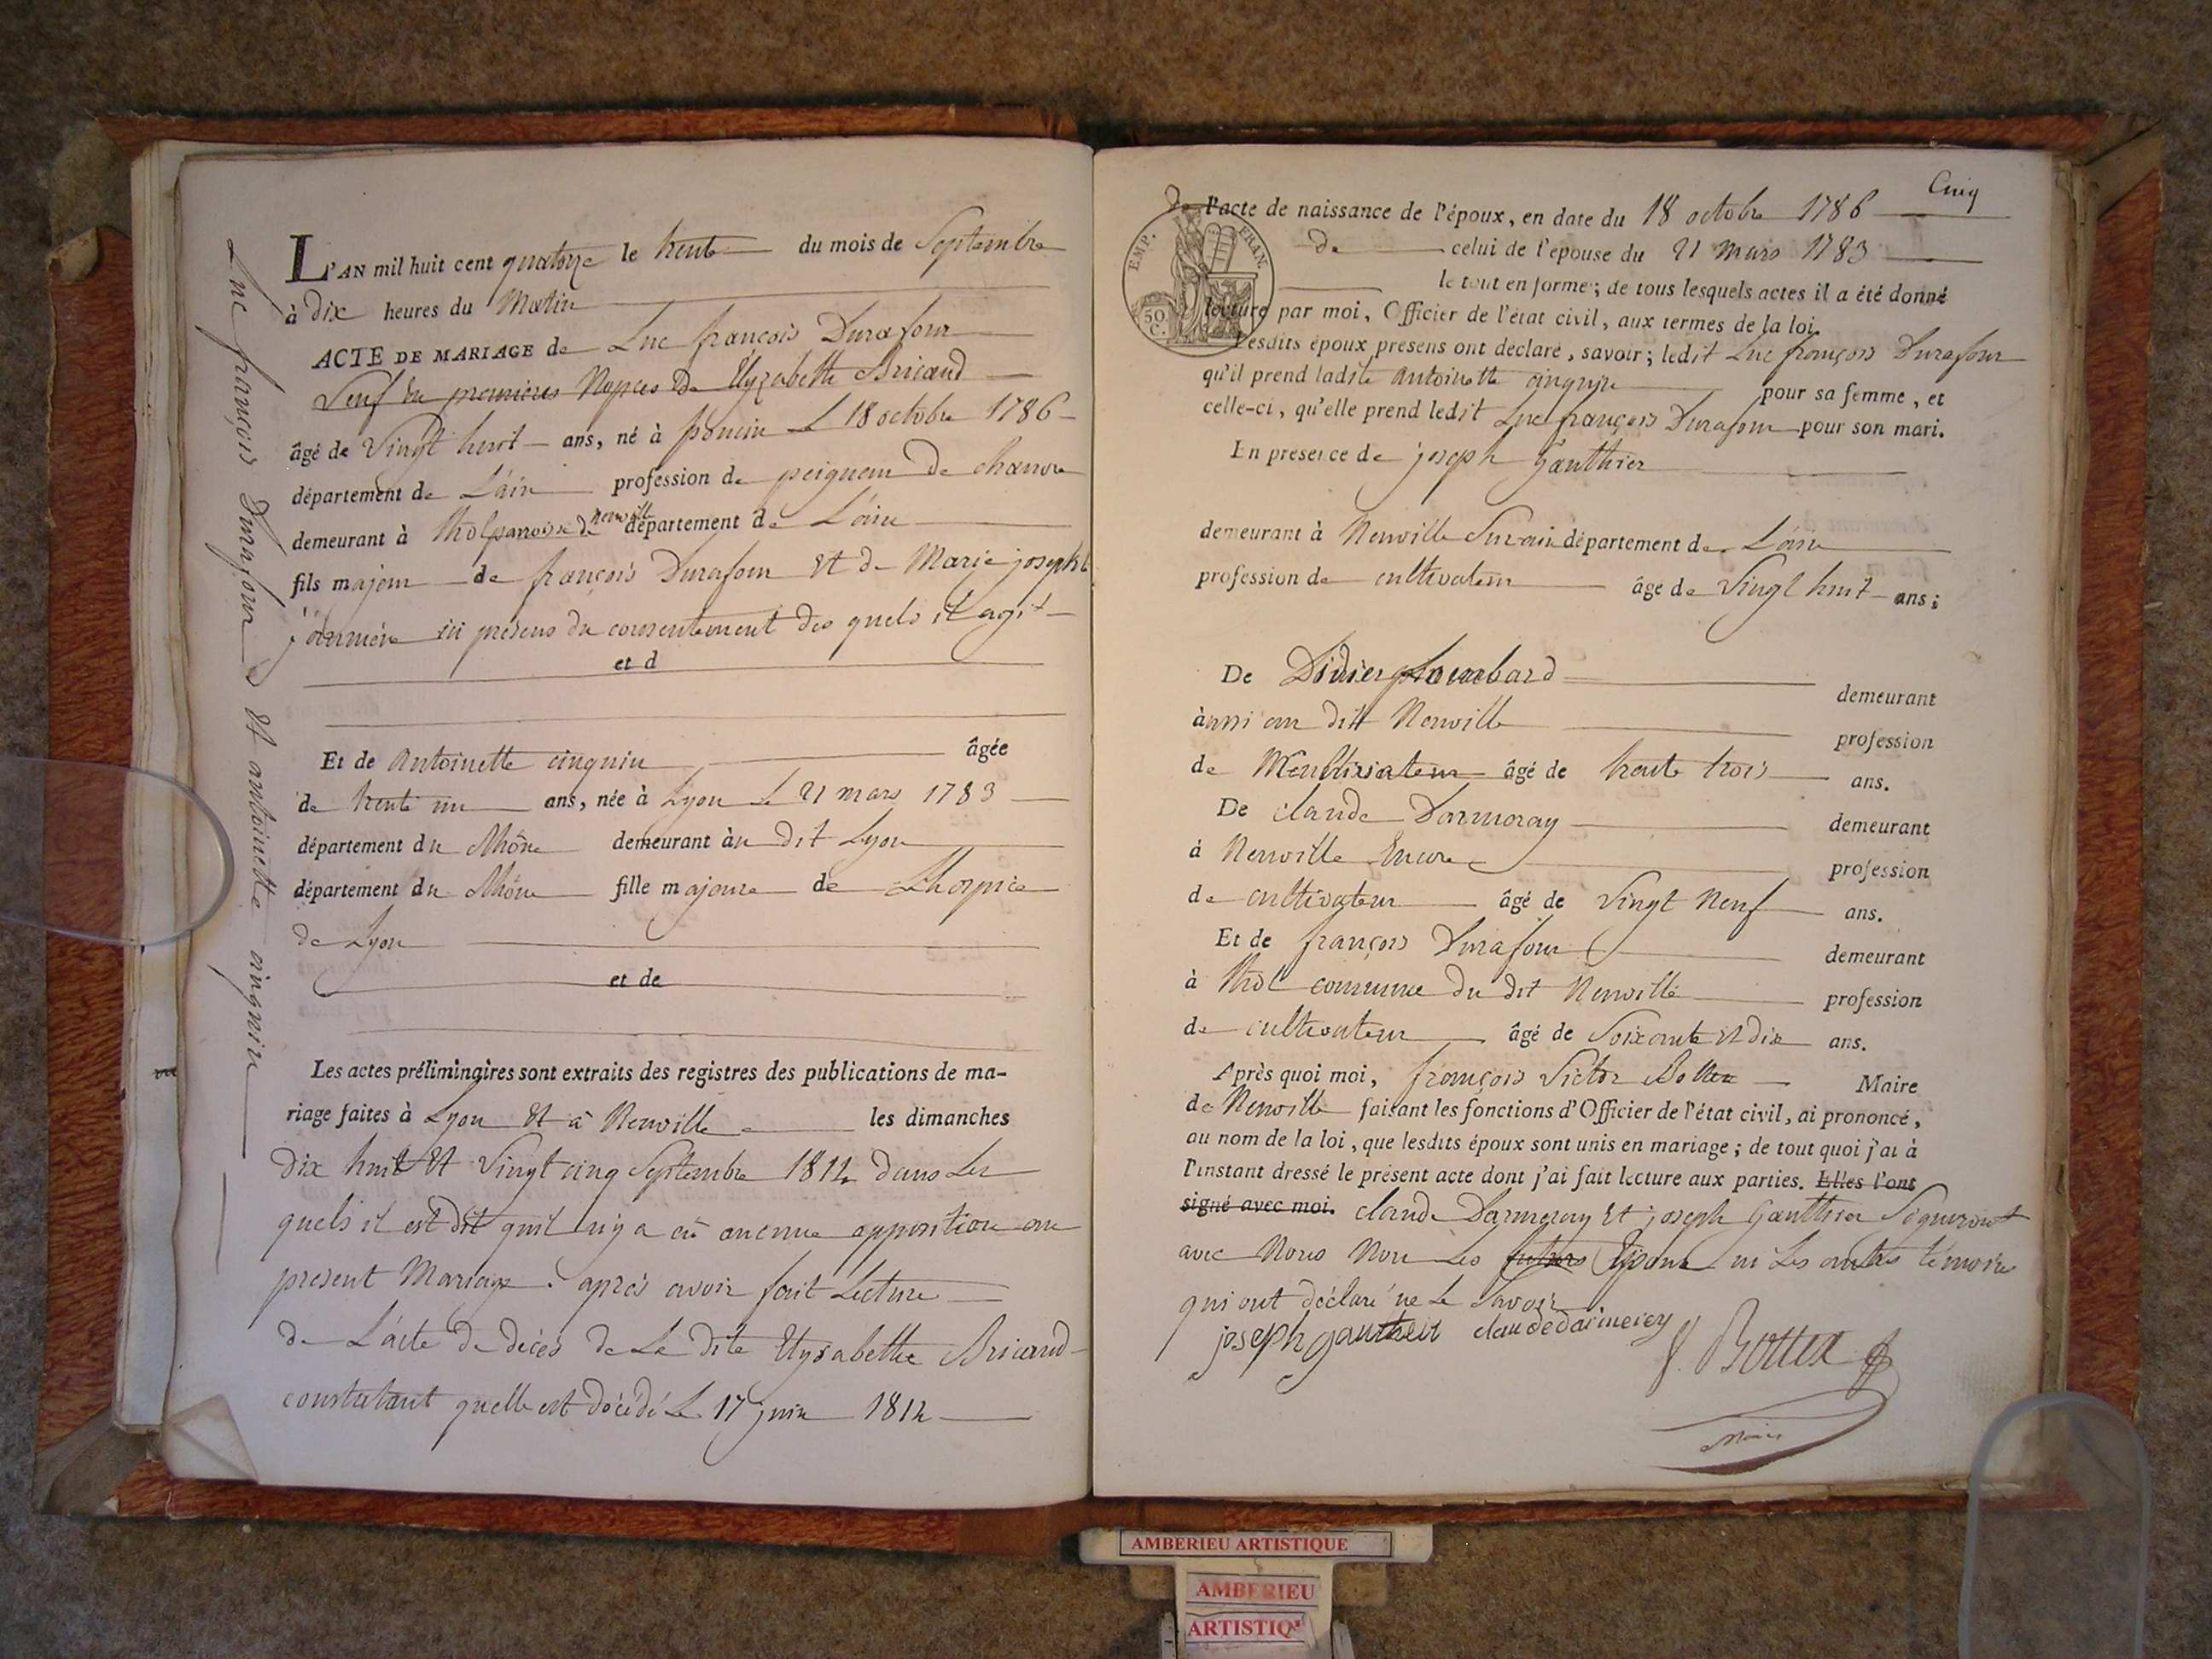 Luc françois Durafour et antoinette cinquin
L'AN mil huit cent quatorze le trente du mois de Septembre
à dix heures du Matin
ACTE DE MARIAGE de Luc françois Durafour
Veuf en premières Nopces de Elyzabette Bricaud
âgé de Vingt huit ans, né à poncin le 18 octobre 1786
département de L'ain profession de peigneur de chanvre
demeurant à thol paroisse de neuville département de L'ain
fils majeur de françois Durafour Et de Marie josephte
ici presens du consentement des quels il agit
et d
Et de Antoinette cinquin âgée
de trente un ans, née à Lyon le 21 mars 1783
département du Rhône demeurant àu dit Lyon
département du Rhône fille majeure de L'hospice
de Lyon
et de
Les actes préliminaires sont extraits des registres des publications de ma-
riage faites à Lyon Et à Neuville les dimanches
dix huit Et Vingt cinq Septembre 1814 dans Les
quels il est dit quil n'y a eû aucune opposition au
present Mariage. après avoir fait Lecture
de L'acte de décès de La dite Elyzabethe Bricaud
constatant quelle est décédé Le 17 juin 1814
Cinq
de l'acte de naissance de l'époux, en date du 18 octobre 1786
EMP. FRAN.
de celui de l'épouse du 21 mars 1783
le tout en forme; de tous lesquels actes il a été donné
50 C.
lecture par moi, Officier de l'état civil, aux termes de la loi.
Lesdits époux présens ont déclaré, savoir; ledit Luc françois Durafour
qu'il prend ladite Antoinette cinquin pour sa femme, et
celle-ci, qu'elle prend ledit Luc françois Durafour pour son mari.
En présence de joseph Gauthier
demeurant à Neuville Sur ain département de L'ain
profession de cultivateur âgé de Vingt huit ans;
De Didier Lombard demeurant
àussi au dit Neuville profession
de âgé de trente trois ans.
De claude Darmeray demeurant
à Neuville Encore profession
de cultivateur âgé de Vingt Neuf ans.
Et de françois Durafour demeurant
à thol commune du dit Neuville profession
de cultivateur âgé de Soixante et dix ans.
Après quoi moi, françois Victor Bottex Maire
de Neuville faisant les fonctions d'Officier de l'état civil, ai prononcé,
au nom de la loi, que lesdits époux sont unis en mariage; de tout quoi j'ai à
l'instant dressé le présent acte dont j'ai fait lecture aux parties. Elles l'ont
signé avec moi. claude Darmeray Et joseph Gauthier Signeront
avec Nous Non Les futurs Epoux ni Les autres témoins
qui ont déclaré ne Le Savoir
joseph gautheir claude darmerey f. Bottex
Maire
AMBERIEU ARTISTIQUE
AMBERIEU
ARTISTIQ